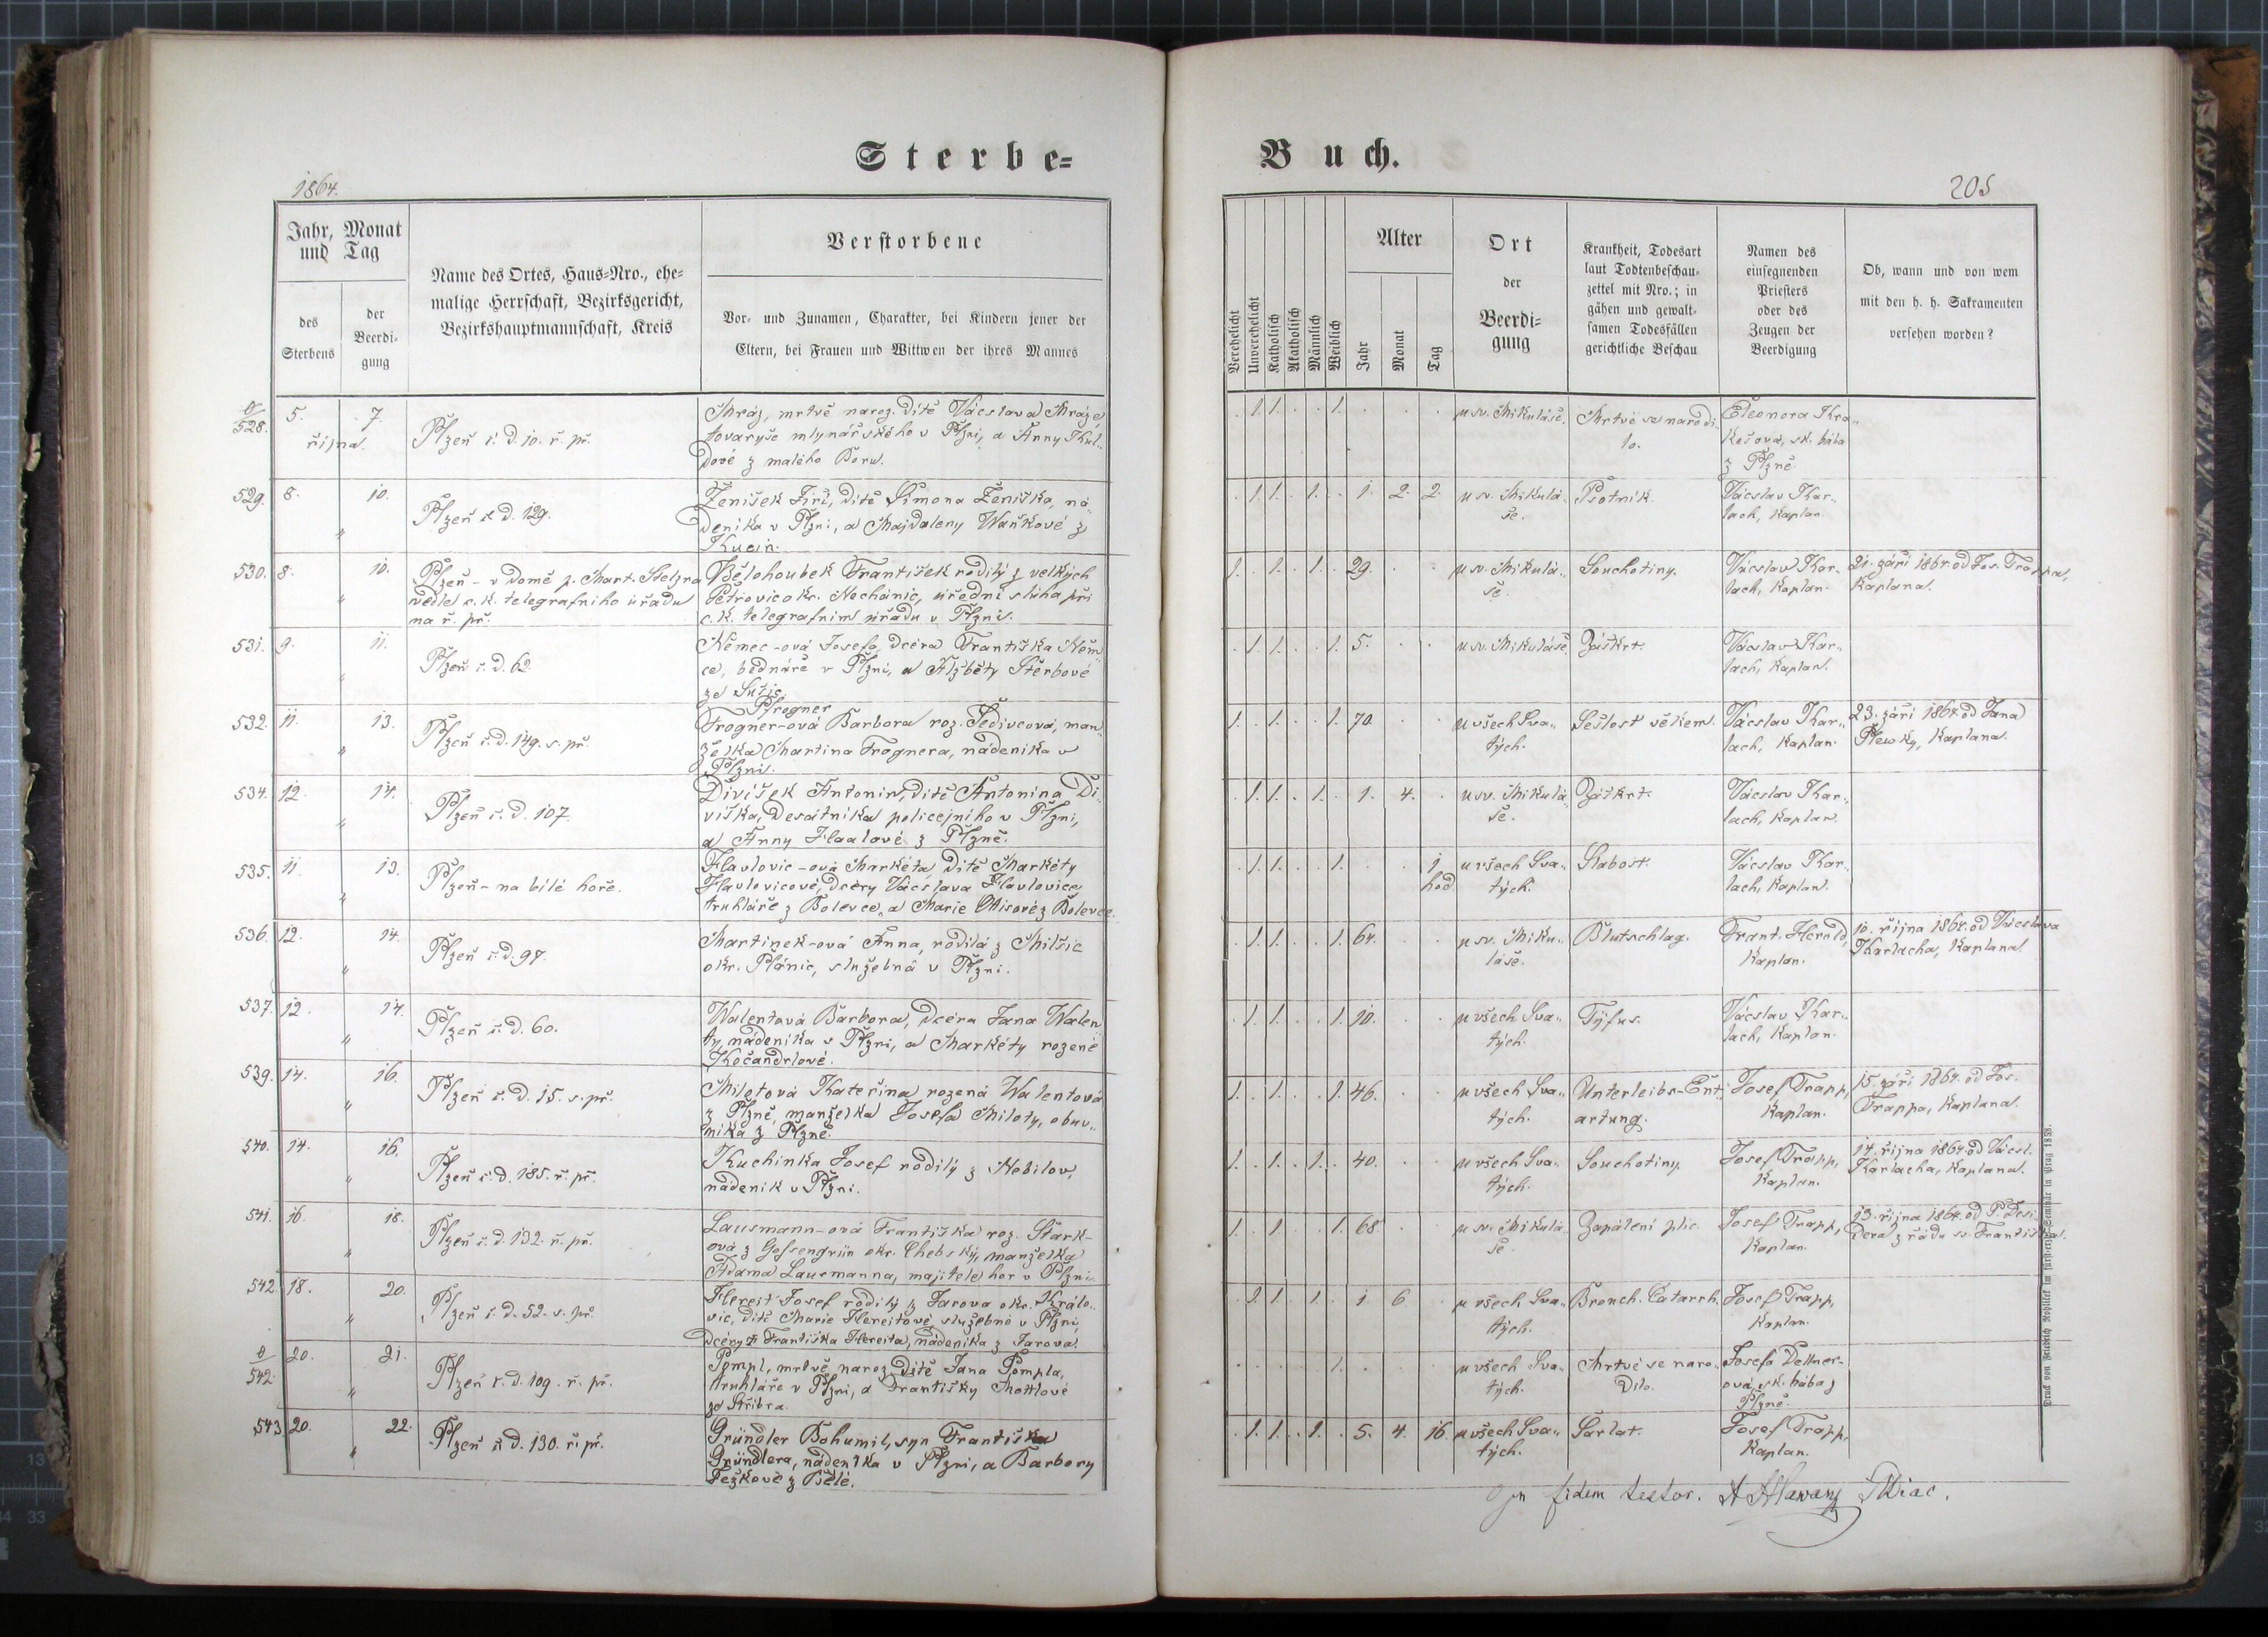 Sterbe-
1864.
Jahr, Monat
und Tag
des
Sterbens
der
Beerdi-
gung
Name des Ortes, Haus-Nro., ehe-
malige Herrschaft, Bezirksgericht,
Bezirkshauptmannschaft, Kreis
Verstorbene
Vor- und Zunamen, Charakter, bei Kindern jener der
Eltern, bei Frauen und Wittwen der ihres Mannes
0/528. 5. 7.
října.
Plzeň č. d. 10. ř. př.
Mráz, mrtvě naroz. dítě Václava Mráze,
tovaryše mlynářského v Plzni, a Anny
dové z malého Boru.
529. 8. 10. "
Plzeň č. d. 129.
Ženíšek Jiří, dítě Šimona Ženíška, ná-
deníka v Plzni, a Majdaleny Waňkové z
530. 8. 10. "
Plzeň - v domě p. Mart. Stelzra
vedle c. k. telegrafního úřadu
na ř. př.
Bělohoubek František rodilý z velkých
Petrovic okr. Nechanic, úřední sluha při
c. k. telegrafním úřadu v Plzni.
531. 9. 11. "
Plzeň č. d. 62.
Němec-ová Josefa, dcera Františka Něm-
ce, bednáře v Plzni, a Alžběty Štěrbové
ze Sušic.
532. 11. 13. "
Plzeň č. d. 149. s. př.
Pfrogner
Frogner-ová Barbora roz. Šedivcová, man-
želka Martina Frognera, nádeníka v
Plzni.
534. 12. 14. "
Plzeň č. d. 107.
Divíšek Antonín, dítě Antonína Di-
víška, desátníka policejního v Plzni,
a Anny Haalové z Plzně.
535. 11. 13. "
Plzeň - na bílé hoře.
Havlovic-ová Markéta, dítě Markéty
Havlovicové, dcery Václava Havlovice,
truhláře z Bolevce, a Marie z Bolevce.
536. 12. 14. "
Plzeň č. d. 97.
Martinek-ová Anna, rodilá z Milčic
okr. Plánic, služebná v Plzni.
537. 12. 14. "
Plzeň č. d. 60.
Walentová Barbora, dcera Jana Walen-
ty, nádeníka v Plzni, a Markéty rozené
Kočandrlové.
539. 14. 16. "
Plzeň č. d. 15. s. př.
Miletová Kateřina rozená Walentová
z Plzně, manželka Josefa Miloty, obuv-
níka z Plzně.
540. 14. 16. "
Plzeň č. d. 185. ř. př.
Kuchinka Josef rodilý z Nebílov,
nádeník v Plzni.
541. 16. 18. "
Plzeň č. d. 132. ř. př.
Lausmann-ová Františka roz. Stark-
ová z Gossengrün okr. Chebský, manželka
Adama Lausmanna, majitele hor v Plzni.
542. 18. 20. "
Plzeň č. d. 52. s. př.
Hereit Josef rodilý z Jarova okr. Králo-
vic, dítě Marie Hereitové, služebné v Plzni,
dcery Františka Hereita, nádeníka z Jarova.
0/542. 20. 21. "
Plzeň č. d. 109. ř. př.
Pompl, mrtvě naroz. dítě Jana Pompla,
truhláře v Plzni, a Františky Mottlové
ze Stříbra.
543. 20. 22. "
Plzeň č. d. 130. ř. př.
Gründler Bohumil, syn Františka
Gründlera, nádeníka v Plzni, a Barbory
Pežkové z Bělé.
Buch.
205
Verehelicht
Unverehelicht
Katholisch
Akatholisch
Männlich
Weiblich
Alter
Jahr
Monat
Tag
Ort
der
Beerdi-
gung
Krankheit, Todesart
laut Todtenbeschau-
zettel mit Nro.; in
gähen und gewalt-
samen Todesfällen
gerichtliche Beschau
Namen des
einsegnenden
Priesters
oder des
Zeugen der
Beerdigung
Ob, wann und von wem
mit den h. h. Sakramenten
versehen worden?
. 1. 1. . . 1. . . .
u sv. Mikuláše.
Mrtvé se narodi-
lo.
Eleonora Kra-
kešová, sk. bába
z Plzně.
. 1. 1. . 1. . 1. 2. 2.
u sv. Mikulá-
še.
Psotník.
Václav Kar-
lach, kaplan.
1. . 1. . 1. . 29. . .
u sv. Mikulá-
še.
Souchotiny.
Václav Kar-
lach, kaplan.
21. září 1864. od Jos. Trappa,
kaplana.
. 1. 1. . . 1. 5. . .
u sv. Mikuláše.
Záškrt.
Václav Kar-
lach, kaplan.
1. . 1. . . 1. 70. . .
u všech Sva-
tých.
Sešlost věkem.
Václav Kar-
lach, kaplan.
23. září 1864. od Jana
Plewky, kaplana.
. 1. 1. . 1. . 1. 4. .
u sv. Mikulá-
še.
Záškrt.
Václav Kar-
lach, kaplan.
. 1. 1. . . 1. . . 1 hod.
u všech Sva-
tých.
Slabost.
Václav Kar-
lach, kaplan.
. 1. 1. . . 1. 64. . .
u sv. Miku-
láše.
Blutschlag.
Frant. Herold,
kaplan.
10. října 1864. od Václava
Karlacha, kaplana.
. 1. 1. . . 1. 10. . .
u všech Sva-
tých.
Týfus.
Václav Kar-
lach, kaplan.
1. . 1. . . 1. 46. . .
u všech Sva-
tých.
Unterleibs-Ent-
artung.
Josef Trapp,
kaplan.
15. září 1864. od Jos.
Trappa, kaplana.
1. . 1. . 1. . 40. . .
u všech Sva-
tých.
Souchotiny.
Josef Trapp,
kaplan.
14. října 1864. od Václ.
Karlacha, kaplana.
1. 1. . 1. 68. .
u sv. Mikulá-
še.
Zapálení plic.
Josef Trapp,
kaplan.
13. října 1864. od P. Desi-
dera z řádu sv. Františka.
. 1. 1. . 1. . 1. 6. .
u všech Sva-
tých.
Bronch. Catarrh.
Josef Trapp,
kaplan.
. . . . . 1. . . .
u všech Sva-
tých.
Mrtvé se naro-
dilo.
Josefa Dellner-
ová, sk. bába z
Plzně.
. 1. 1. . 1. . 5. 4. 16.
u všech Sva-
tých.
Šarlat.
Josef Trapp,
kaplan.
In fidem testor.
Druck von Friedrich Rohliček im fürst-erzb. Seminär in Prag 1858.